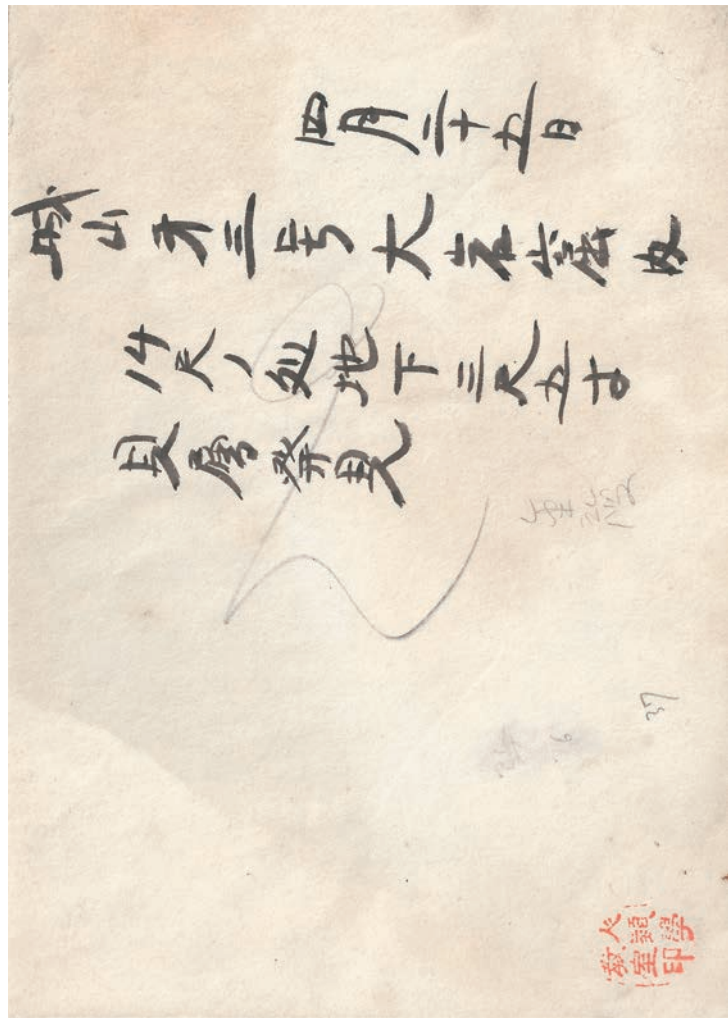 四月二十五日
城山才三号大岩窟内
14尺ノ処地下三尺五寸
貝層發見
37
人類學
教室印